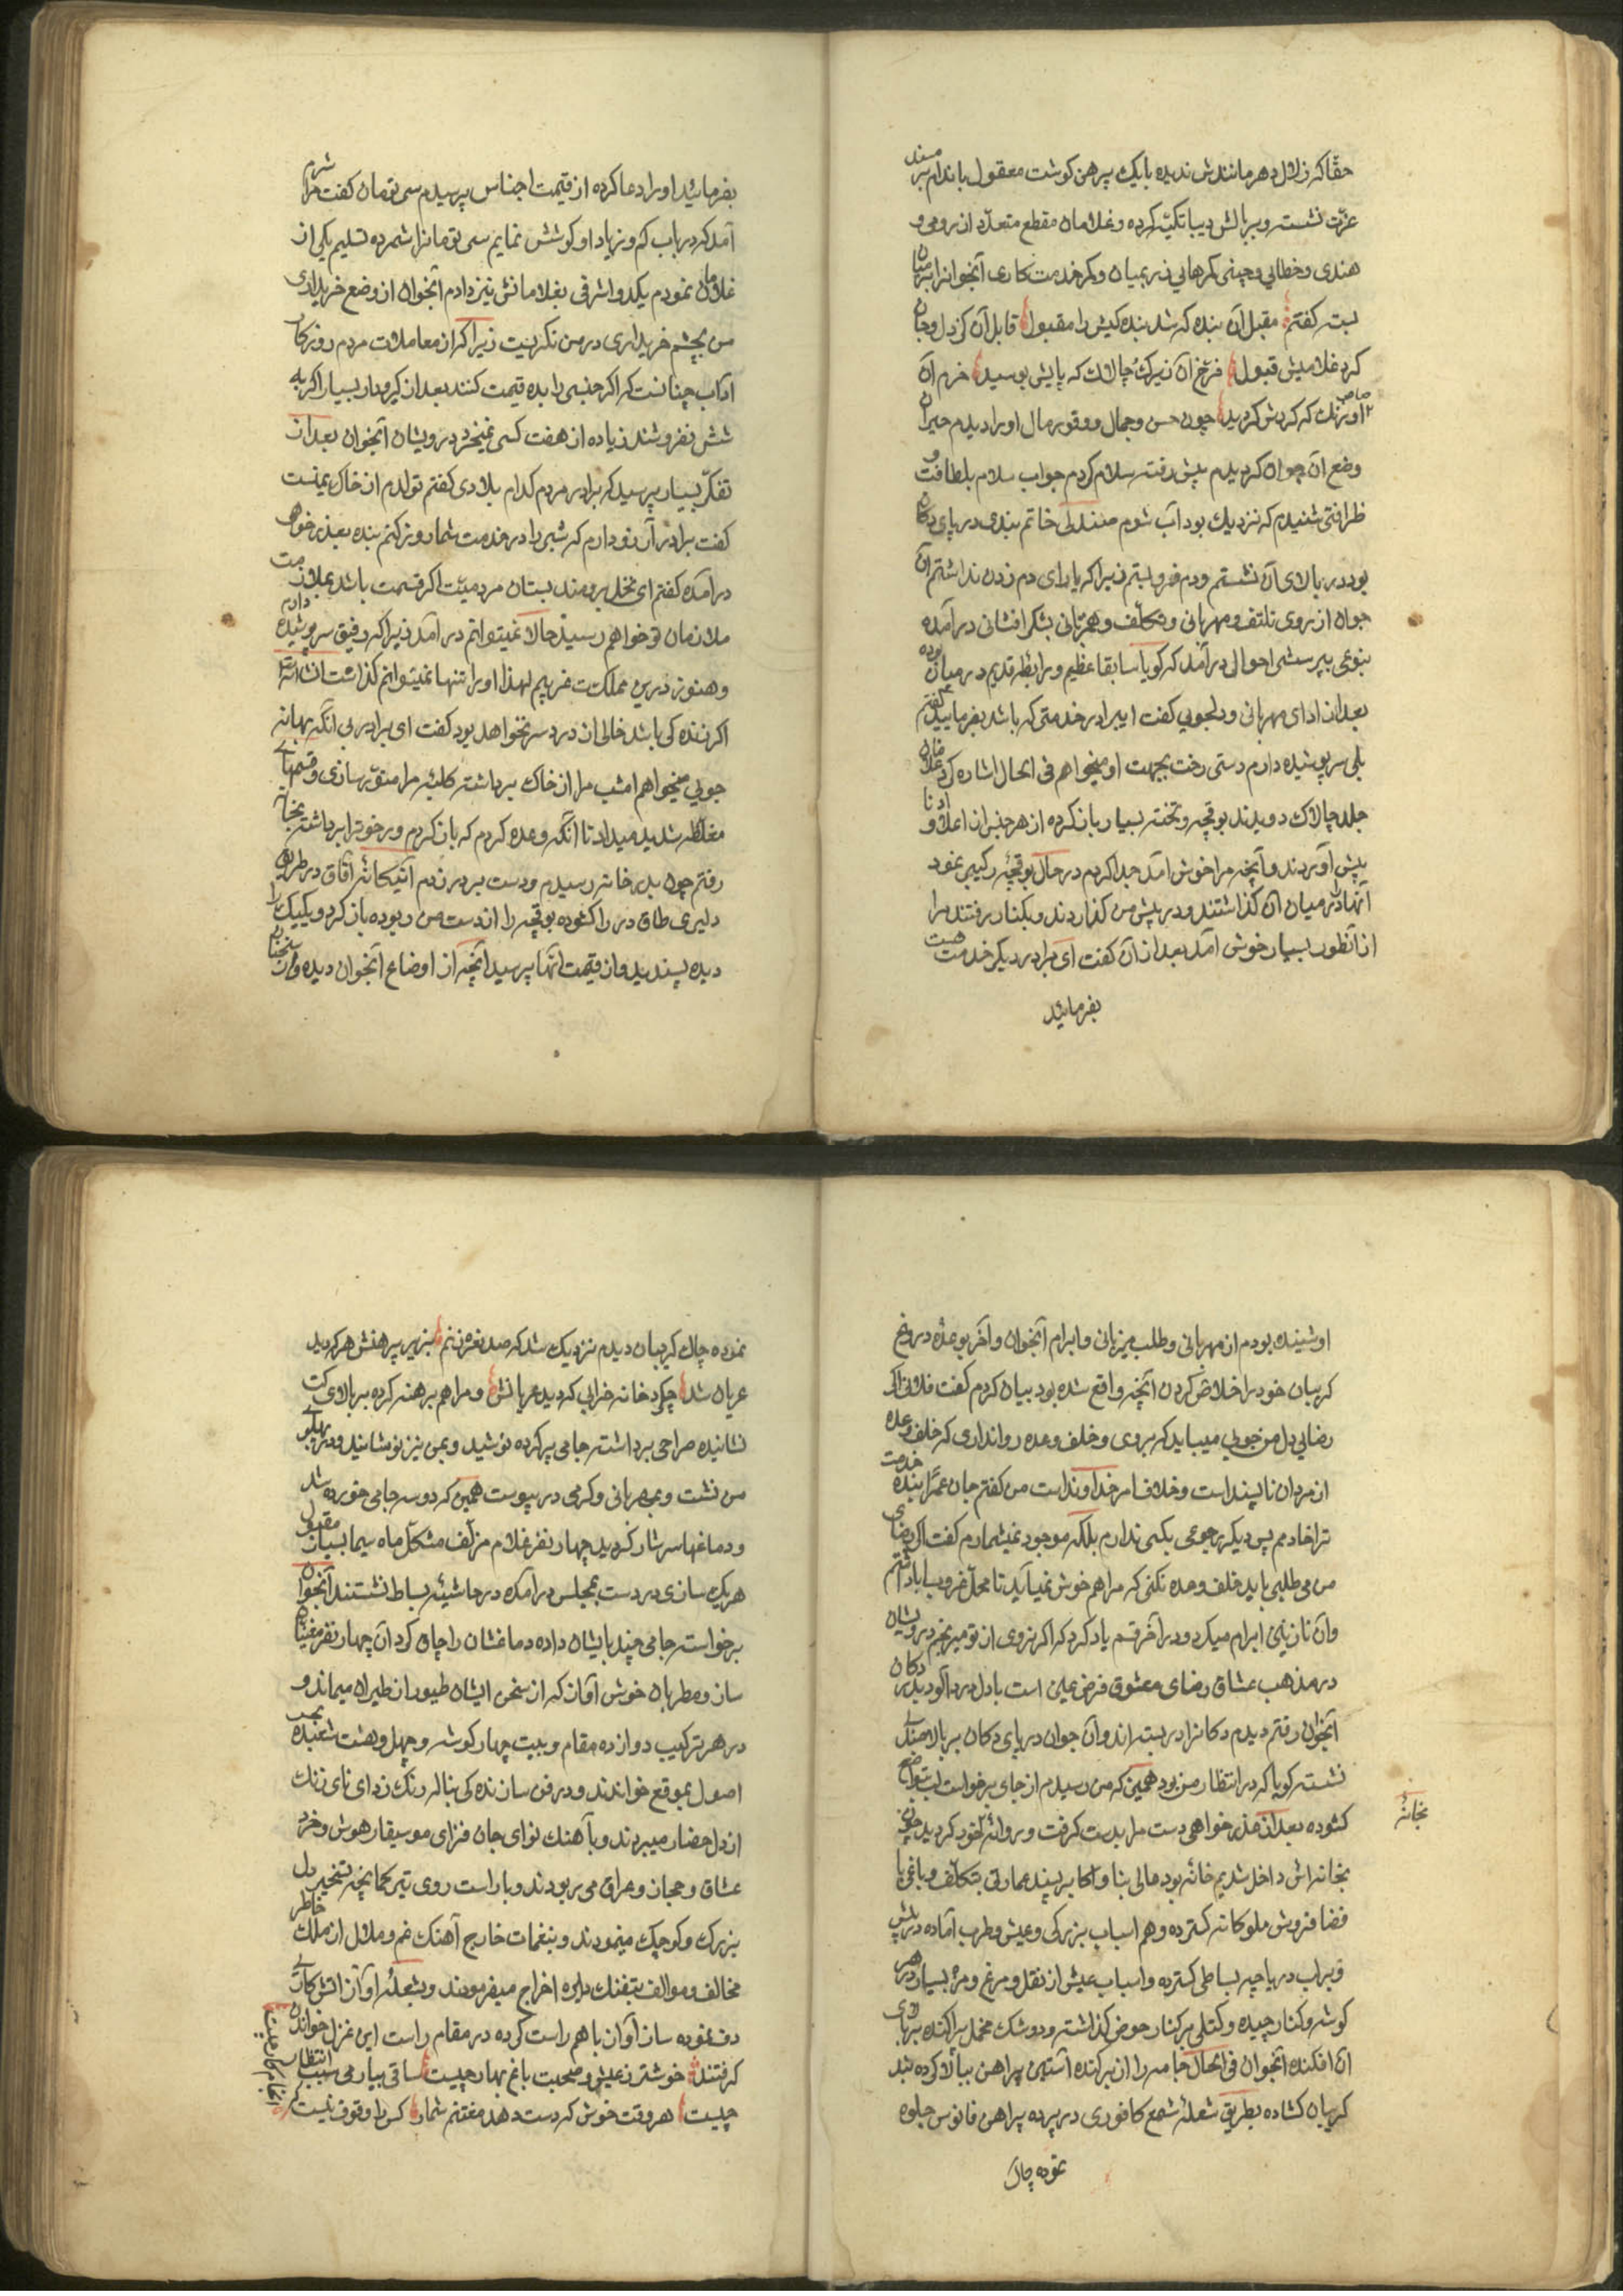 حقا که زلال دهر مانندش ندیده بایک پیرهن کوشت معقول باندام بر مسند
عزّت نشسته و بر بالش دیبا تکیه کرده و غلامان مقطع متعدّد از رومی و
هندی و خطایی و چینی کمرهایی زر بمیان و کمر خدمتکاری آنجوانرا بر میان
بسته کفتم مقبل آن بنده که شد بنده کیش را مقبول قابل آن کز دل و جان
کرد غلامیش قبول فرّخ آن زیرک چالاک که پایش بوسید خرم آن
که کردش کردید چون حسن و جمال و وقور مال او را دیدم حیران
وضع آن جوان کردیدم پیش رفته سلام کردم جواب سلام بلطافت و
ظرافتی شنیدم که نزدیک بود آب شوم صندلی خاتم بندی در پای دکان
بود در بالای آن نشستم و دم فرو بستم زیرا که یارای دم زدن نداشتم آن
جوان از روی تلتف و مهربانی و تکلّف و همزبانی بشکر افشانی درآمده
بنوعی بپرسش احوالی درآمد که کویا سابقا عظیم و رابطه قدیم در میان بوده
بعد از ادای مهربانی و دلجویی کفت ای برادر خدمتی که باشد بفرمایید کفتم
بلی سرپوشیده دارم دستی رخت بجهت او میخواهم فی الحال اشاره کرد غلامان
جلد چالاک دویدند بوقچه و تخته بسیار باز کرده از هر جنس از اعلا و ادنا
پیش آوردند و آنچه مرا خوش آمد جدا کردم در حال بوقچهٔ رکیبر نمود
آنها را در میان آن کذاشتند و در پیش من کذاردند و بکنار رفتند مرا
از آنطور بسیار خوش آمد بعد از آن کفت ای برادر دیکر خدمت هست
بفرمائید
بفرمائید او را دعا کرده از قیمت اجناس پرسیدم سی تومان کفت مرا شرم
آمد که در باب کم و زیاد او کوشش نمایم سی تومانرا شمرده تسلیم یکی از
غلامان نمودم یکدو اشرفی بغلامانش نیز دادم آنجوان از وضع خریداری
من بچشم خریداری در من نکریست زیرا که از معاملات مردم روزکار
آداب چنانست که اکر جنسی را بده قیمت کنند بعد از کیر و دار بسیار اکر به
شش بفروشند زیاده از هفت کسی نمیخرد درویشان آنجوان بعد از
تفکّر بسیار پرسید که برادر مردم کدام بلادی کفتم تولدم از خاک یمنست
کفت برادر آرزو دارم که شبی را در خدمت شما روز کنم بنده بعذر خواهی
درآمده کفتم ای نخل برومند بستان مردمیّت اکر قسمت باشد بملازمت
ملازمان تو خواهم رسید حالا نمیتوانم درآمد زیرا که رفیق سرپوشیده دارم
و هنوز درین مملکت غریبم لهذا او را تنها نمیتوانم کذاشت انشاءالله
اکر زنده کی باشد خالی از دردسر نخواهد بود کفت ای برادر بی آنکه بهانه
جویی میخواهم امشب مرا از خاک برداشته کلبهٔ مرا منوّر سازی و قسمهای
مغلّظه شدید میداد تا آنکه وعده کردم که باز کردم و رخوترا برداشته بخانه
رفتم چون بدر خانه رسیدم و دست بر در زدم آنیکانهٔ آفاق در طریق
دلیری طاق در را کشوده بوقچه را از دست من ربوده باز کرد و یکیک را
دیده پسندید و از قیمت آنها پرسید آنچه از اوضاع آنجوان دیده و از سخنان
او شنیده بودم از مهربانی و طلب میزبانی و ابرام آنجوان و آخر بوعده دروغ
کریبان خود را خلاص کردن آنچه واقع شده بود بیان کردم کفت فلانی اکر
رضایی دل من جویی میباید که بروی و خلف وعده روا نداری که خلف وعده
از مردان ناپسند است و خلاف امر خداوند است من کفتم جان عمّ از بنده خدمت
ترا خادمم پس دیکر رجوعی بکسی ندارم بلکه موجود نمیشمارم کفت اکر رضای
من می طلبی باید خلف وعده نکنی که مرا هم خوش نمیآید تا محلّ غروب ابا داشتم
و آن نازنین ابرام میکرد و در آخر قسم یاد کرد که اکر نروی از تو میرنجم درویشان
در مذهب عشاق رضای معشوق فرض عین است با دل دردآلود بدر دکان
آنجوان رفتم دیدم دکانرا در بسته اند و آن جوان در پای دکان بر بالا صندلی
نشسته کویا که در انتظار من بود همین که من رسیدم از جای برخواست لب بتواضع
کشوده بعد از عذر خواهی دست مرا بدست کرفت و روانهٔ خود کردید چون
بخانهٔ
بخانه اش داخل شدیم خانه بود عالی بنا و اکابر پسند عمارتی بتکلّف و باغی با
فضا فروش ملوکانه کسترده و هم اسباب بزرکی و عیش و طرب آماده در پیش
و بر لب دریاچه بساطی کسترده و اسباب عیش از نقل و مرغ و مزه بسیار در هر
کوشه و کنار چیده و کتلی بر کنار حوض کذاشته و دوشک مخمل پراکنده بر بالای
آن افکنده آنجوان فی الحال جامه را از بر کنده آستین پیراهن ببالا کرده بند
کریبان کشاده بطریق شعلهٔ شمع کافوری در پرده پیراهن فانوس جلوه
نموده چاک
نموده چاک کریبان دیدم نزدیک شد که صد نعره زنم بزیر پیرهنش هر که دید
عریان شد چکرد خانه خرابی که دید عریانش و مرا هم برهنه کرده بر بالای کت
نشانیده صراحی برداشته جامی پر کرده نوشید و بمن نیز نوشانید و در پهلوی
من نشست و بمهربانی و کرمی در پیوست همین که دو سه جامی خورده شد
و دماغها سرشار کردید چهار نفر غلام مزلّف مشکّل ماه سیما بسیار مقبول
هر یک سازی در دست بمجلس درآمده در حاشیهٔ بساط نشستند آنجوان
برخواسته جامی چند بایشان داده دماغشان را چاق کرد آن چهار نفر مغنیان
ساز و مطربان خوش آواز که از سخن ایشان طیور از طیران میماند و
در هر ترکیب دوازده مقام و بیست چهار کوشه و چهل و هشت شعبده
اصول بموقع خواندند و در فن سازنده کی بناله رنک زدای نای زنک
از دل حضار میبردند و با آهنک نوای جان فزای موسیقار هوش و خرد
عشاق و حجاز و عراق می ربودند و باراست روی تیر کمانچه تسخیر دل
بزرک و کوچک مینمودند و بنغمات خارج آهنک غم و ملال از ملک خاطر
مخالف و موالف بتفنک دایره اخراج میفرمودند و بشعلهٔ آواز آتش کاری
دف نموده ساز آواز باهم راست کرده در مقام راست این غزل خواندن
کرفتند خوشتر ز عیش و صحبت باغ بهار چیست ساقی بیار می سبب انتظار
چیست هر وقت خوش که دست دهد مغتنم شمار کس را وقوف نیست که
انجام کار چیست